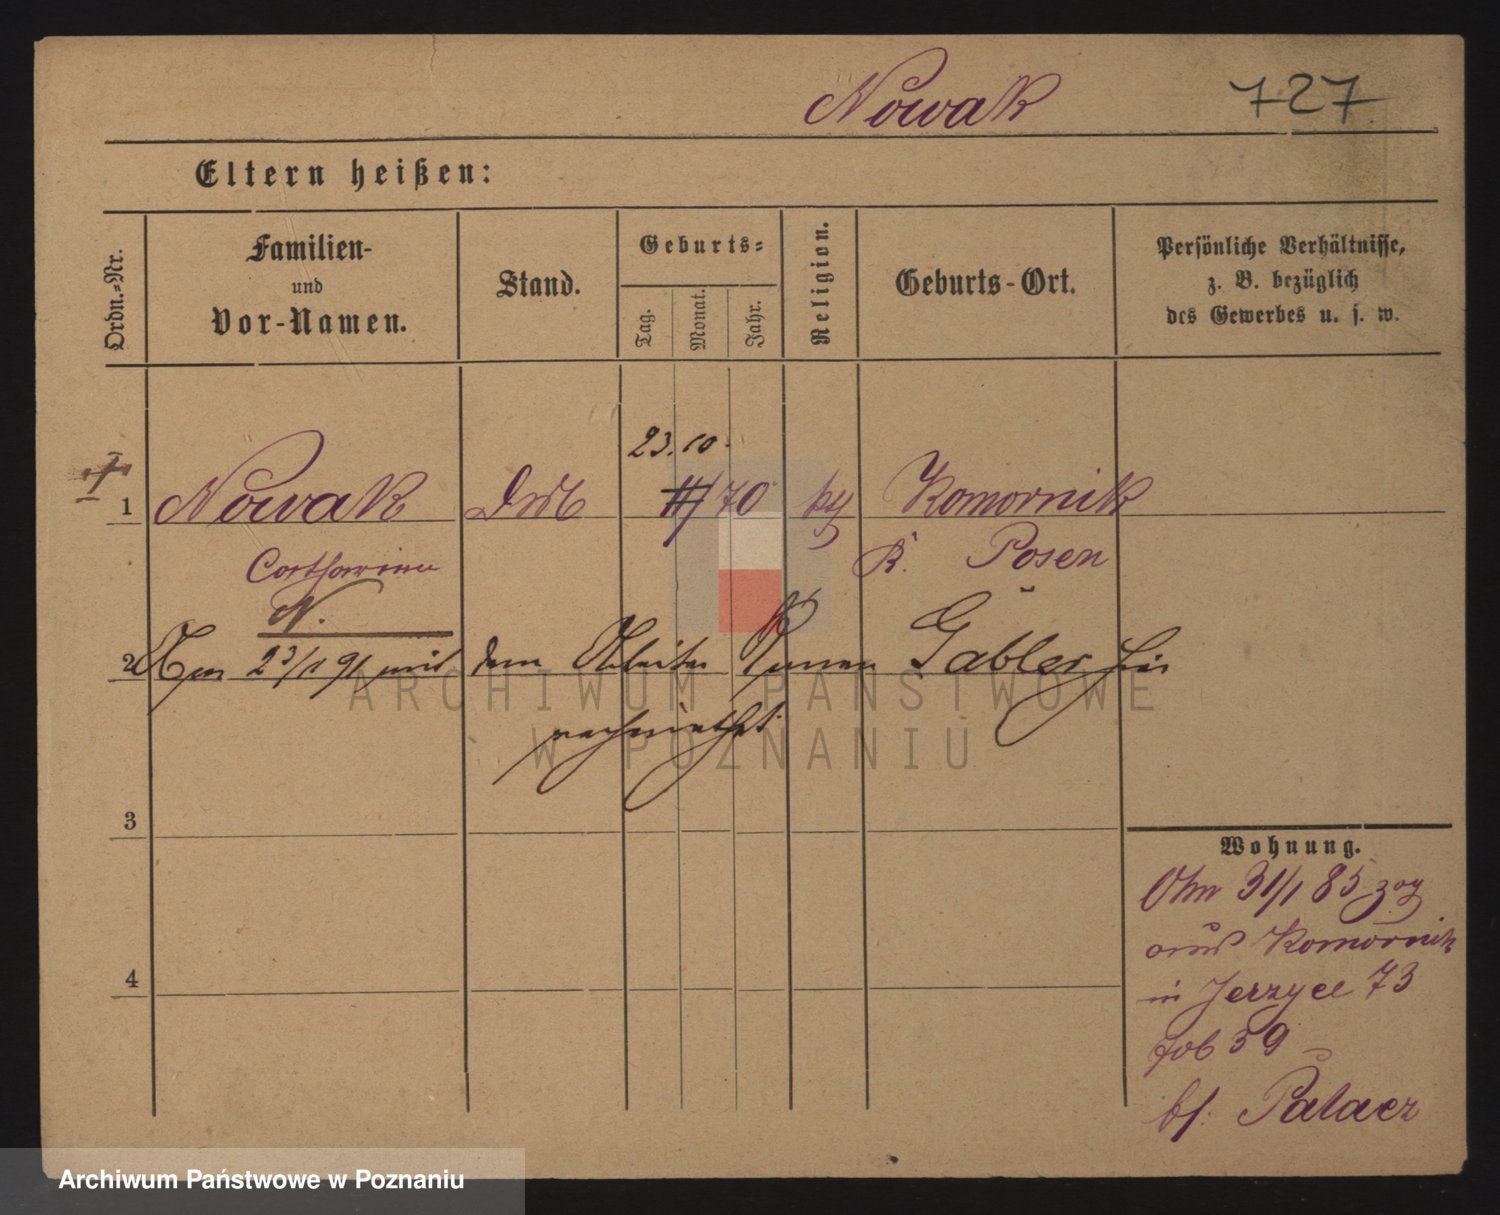 Nowak
727
Eltern heißen:
Ordn.-Nr.
Familien-
und
Vor-Namen.
Stand.
Geburts-
Tag.
Monat.
Jahr.
Religion.
Geburts-Ort.
Persönliche Verhältnisse,
z. B. bezüglich
des Gewerbes u. s. w.
23.10.
1 Nowak 70 Komornik
Catharina K. Posen
N.
2 Am 23/1 91 mit dem Arbeiter Gabler hier
ARCHIWUM PAŃSTWOWE
W POZNANIU
3
Wohnung.
Am 31/1 85 zog
aus Komornik
in Jerzyce 73
4
59
bs. Palacz
Archiwum Państwowe w Poznaniu